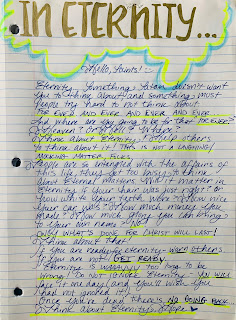 IN ETERNITY...
Hello, Saints! :-)
Eternity. Something satan doesn't want
you to think about, and something most
people try hard to not think about.
FOR EVER AND EVER AND EVER AND EVER...
And where are you going to be for that FOR EVER?
Heaven? Or Hell? Where?
Think about Eternity, & get others
to think about it! THIS IS NOT A LAUGHING
MATTER, FOLKS.
People are so interested with the affairs of
this life, they get too busy to think
about eternal matters. Will it matter in
Eternity if your hair was just right? Or
how white your teeth were? Or how nice
your car was? Or how much money you
made? Or how much glory you can bring
to your own name? NO!
ONLY WHAT'S DONE FOR CHRIST WILL LAST!
Think about that.
If you are ready for eternity - warn others.
If you are not: GET READY.
Eternity is WAAAYYY too long to be
wrong! Do not ignore Eternity. YOU WILL
face it one day! and you'll wish you
had not ignored it!
Once you're dead, there's NO GOING BACK...
Think about Eternity, people